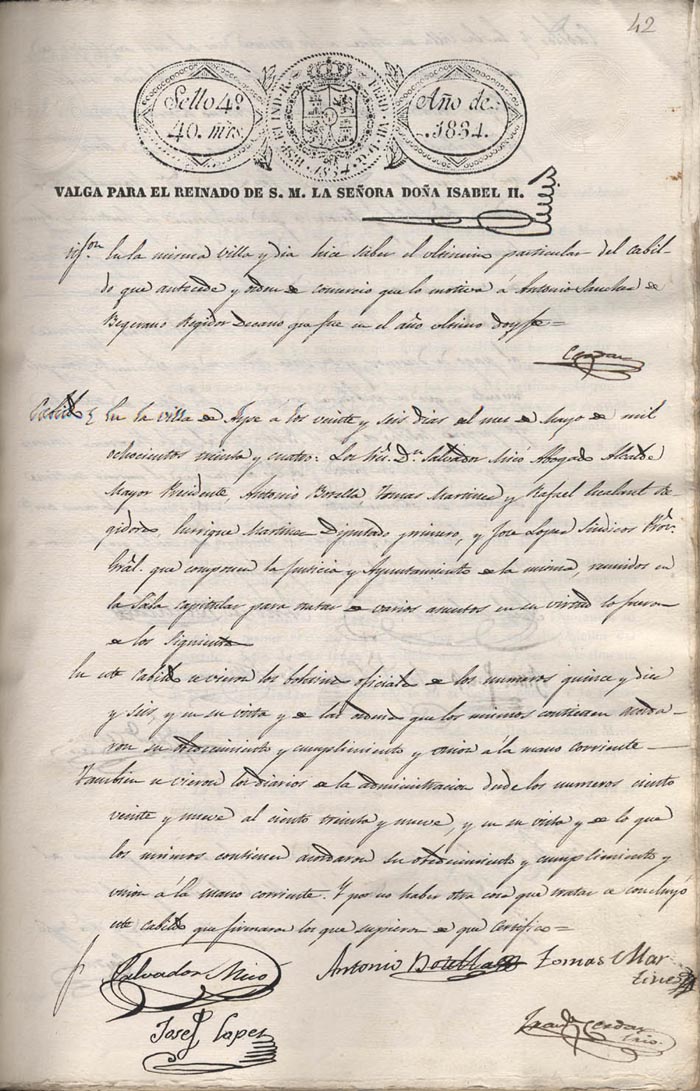 42
Sello 4º
40. mrs.
HISP. ET IND. R. FERD. VII. D. G. 1834.
Año de
1834.
VALGA PARA EL REINADO DE S. M. LA SEÑORA DOÑA ISABEL II.
En la misma villa y dia hice saber el ultimo particular del cabil-
do que antecede y orden de comercio que lo motiva á Antonio Sanchez de
Regidor Decano que fue en el año ultimo doy fe=
Cabildo En la villa de á los veinte y seis dias del mes de Mayo de mil
ochocientos treinta y cuatro: Los Sres. Dn. Salvador Micó Abogado Alcalde
Mayor Presidente, Antonio Botella, Tomas Martinez y Rafael Re-
gidores, Enrrique Martinez Diputado primero, y Jose Lopez Sindico Pror.
Gral. que componen la Justicia y Ayuntamiento de la misma, reunidos en
la Sala capitular para tratar de varios asuntos en su virtud lo fueron
de los siguientes
En este Cabildo se vieron los boletines oficiales de los numeros quince y diez
y seis, y en su vista y de las ordenes que los mismos contienen acorda-
ron su obedecimiento y cumplimiento y union á la mano corriente.
Tambien se vieron los diarios de la administracion desde los numeros ciento
veinte y nueve al ciento treinta y nueve, y en su vista y de lo que
los mismos contienen acordaron su obedecimiento y cumplimiento y
union á la mano corriente. Y por no haber otra cosa que tratar se concluyó
este cabildo que firmaron los que supieron de que certifico=
Salvador Micó Antonio Botella Tomas Mar
tinez
Josef Lopez
Cerdan